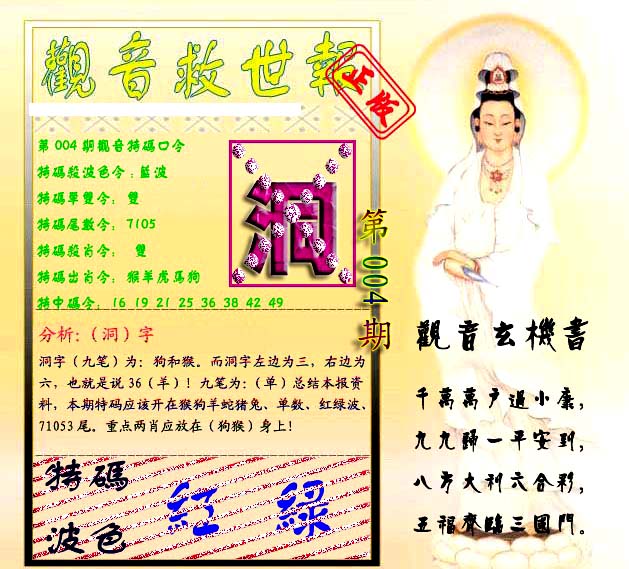 觀音救世報
正版
第004期觀音特碼口令
特碼殺波色令：藍波
特碼單雙令： 雙
特碼尾數令： 7105
特碼殺肖令： 雙
特碼出肖令： 猴羊虎馬狗
特中碼令： 16 19 21 25 36 38 42 49
洞
第004期
分析：（洞）字
洞字（九笔）为：狗和猴。而洞字左边为三，右边为
六，也就是说36（羊）！九笔为：（单）总结本报资
料，本期特码应该开在猴狗羊蛇猪兔、单数、红绿波、
71053尾。重点两肖应放在（狗猴）身上！
特碼
波色
紅 綠
觀音玄機書
千萬萬戶過小康，
九九歸一平安到，
八方大利六合彩，
五福齊臨三國門。